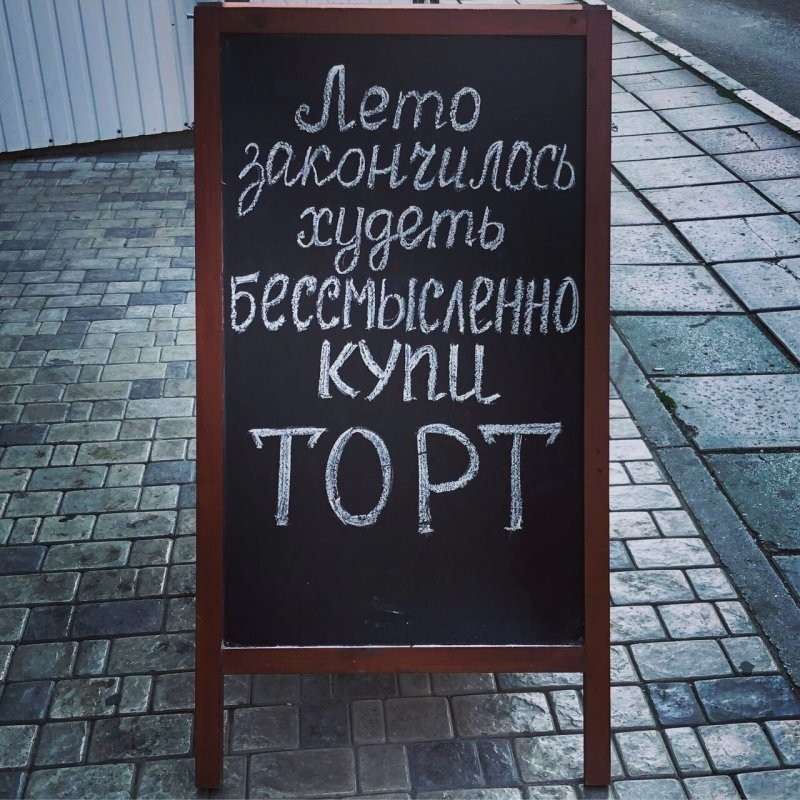 Лето
закончилось
худеть
бессмысленно
купи
ТОРТ